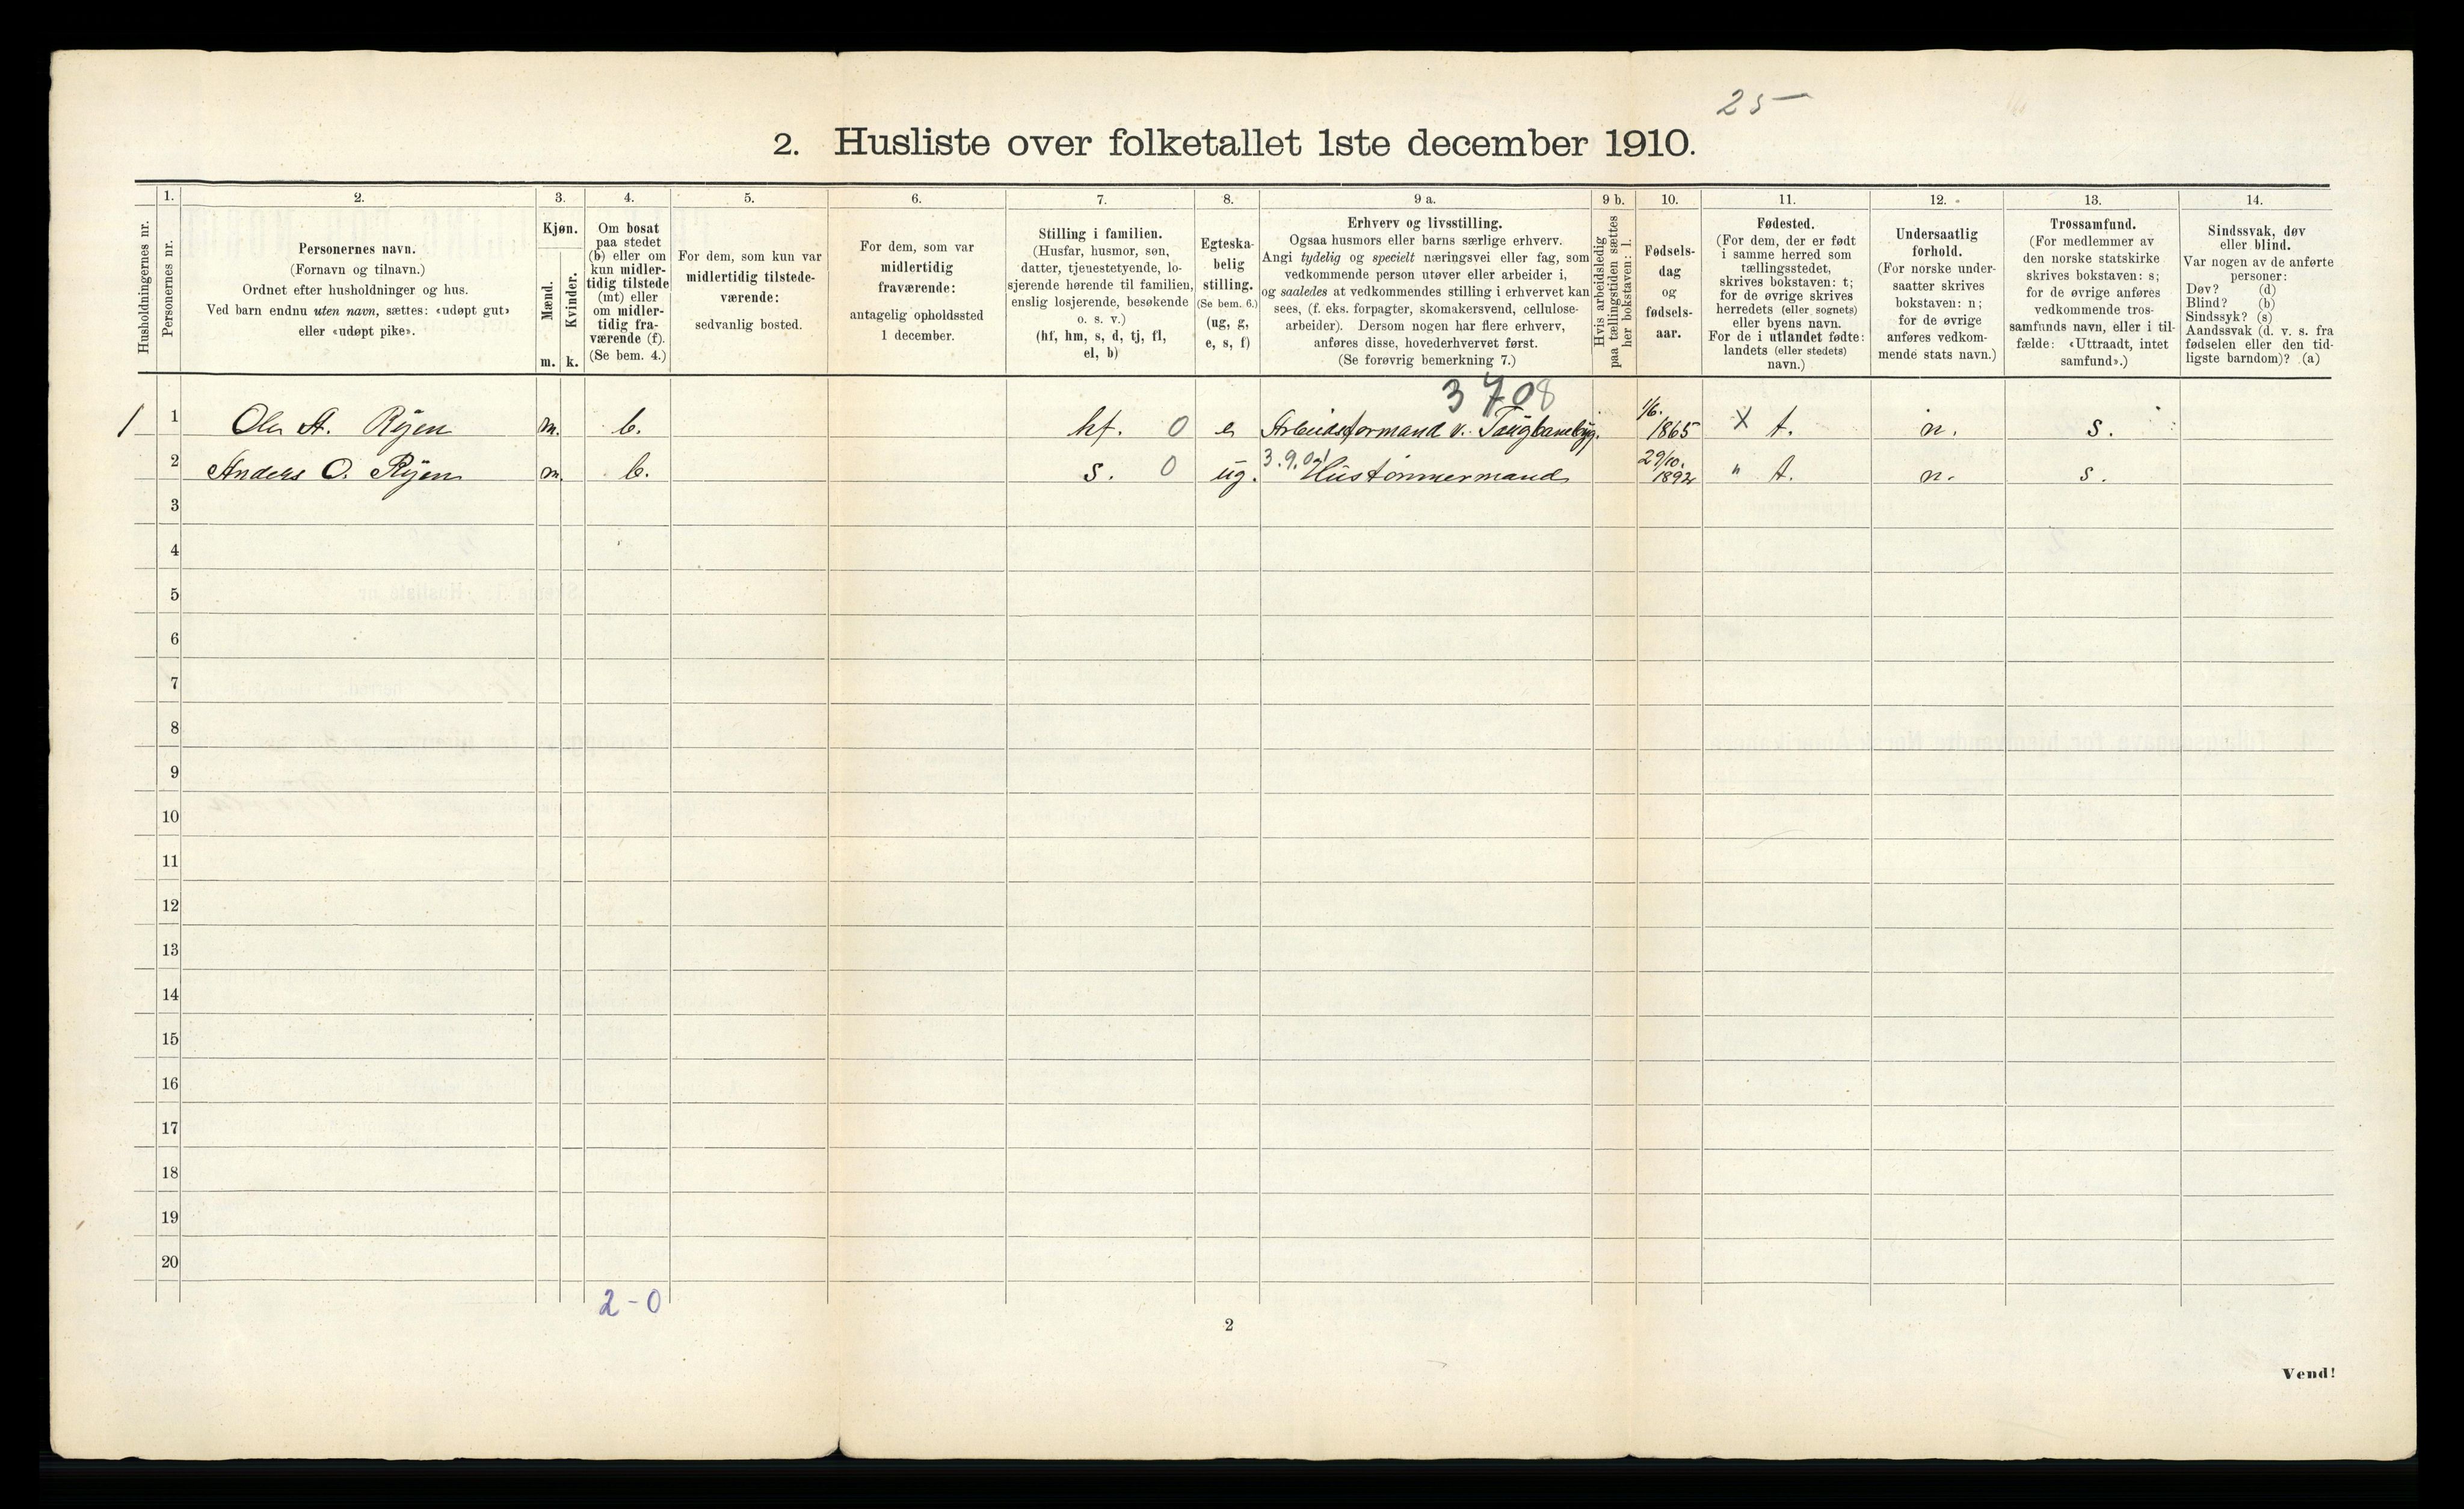 25
2. Husliste over folketallet 1ste december 1910.
Husholdningernes nr.
1.
Personernes nr.
2.
Personernes navn.
(Fornavn og tilnavn.)
Ordnet efter husholdninger og hus.
Ved barn endnu uten navn, sættes: «udøpt gut»
eller «udøpt pike».
3.
Kjøn.
Mænd.
Kvinder.
m. k.
4.
Om bosat
paa stedet
(b) eller om
kun midler-
tidig tilstede
(mt) eller
om midler-
tidig fra-
værende (f).
(Se bem. 4.)
5.
For dem, som kun var
midlertidig tilstede-
værende:
sedvanlig bosted.
6.
For dem, som var
midlertidig
fraværende:
antagelig opholdssted
1 december.
7.
Stilling i familien.
(Husfar, husmor, søn,
datter, tjenestetyende, lo-
sjerende hørende til familien,
enslig losjerende, besøkende
o. s. v.)
(hf, hm, s, d, tj, fl,
el, b)
8.
Egteska-
belig
stilling.
(Se bem. 6.)
(ug, g,
e, s, f)
9 a.
Erhverv og livsstilling.
Ogsaa husmors eller barns særlige erhverv.
Angi tydelig og specielt næringsvei eller fag, som
vedkommende person utøver eller arbeider i,
og saaledes at vedkommendes stilling i erhvervet kan
sees, (f. eks. forpagter, skomakersvend, cellulose-
arbeider). Dersom nogen har flere erhverv,
anføres disse, hovederhvervet først.
(Se forøvrig bemerkning 7.)
9 b.
Hvis arbeidsledig
paa tællingstiden sættes
her bokstaven: l.
10.
Fødsels-
dag
og
fødsels-
aar.
11.
Fødested.
(For dem, der er født
i samme herred som
tællingsstedet,
skrives bokstaven: t;
for de øvrige skrives
herredets (eller sognets)
eller byens navn.
For de i utlandet fødte:
landets (eller stedets)
navn.)
12.
Undersaatlig
forhold.
(For norske under-
saatter skrives
bokstaven: n;
for de øvrige
anføres vedkom-
mende stats navn.)
13.
Trossamfund.
(For medlemmer av
den norske statskirke
skrives bokstaven: s;
for de øvrige anføres
vedkommende tros-
samfunds navn, eller i til-
fælde: «Uttraadt, intet
samfund».)
14.
Sindssvak, døv
eller blind.
Var nogen av de anførte
personer:
Døv? (d)
Blind? (b)
Sindssyk? (s)
Aandssvak (d. v. s. fra
fødselen eller den tid-
ligste barndom)? (a)
3708
1 1 Ole A. Ryen m. b. hf. 0 e Arbeidsformand v. Taugbanebyg. 1/6. 1865 X t. n. s.
2 Anders O. Ryen m. b. s. 0 ug. 3.9.02 Hustømmermand 29/10. 1892 " t. n. s.
3
4
5
6
7
8
9
10
11
12
13
14
15
16
17
18
19
20
2-0
2
Vend!